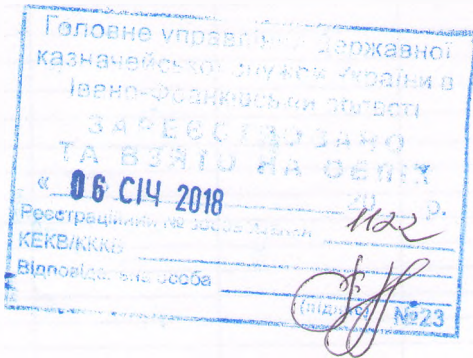 Головне управління Державної
казначейської служби України в
Івано-Франківській області
ЗАРЕЄСТРОВАНО
ТА ВЗЯТО НА ОБЛІК
« 06 СІЧ 2018 20 р.
Реєстраційний № зобов'язання 1122
КЕКВ/ККК
Відповідальна особа
(підпис) №23